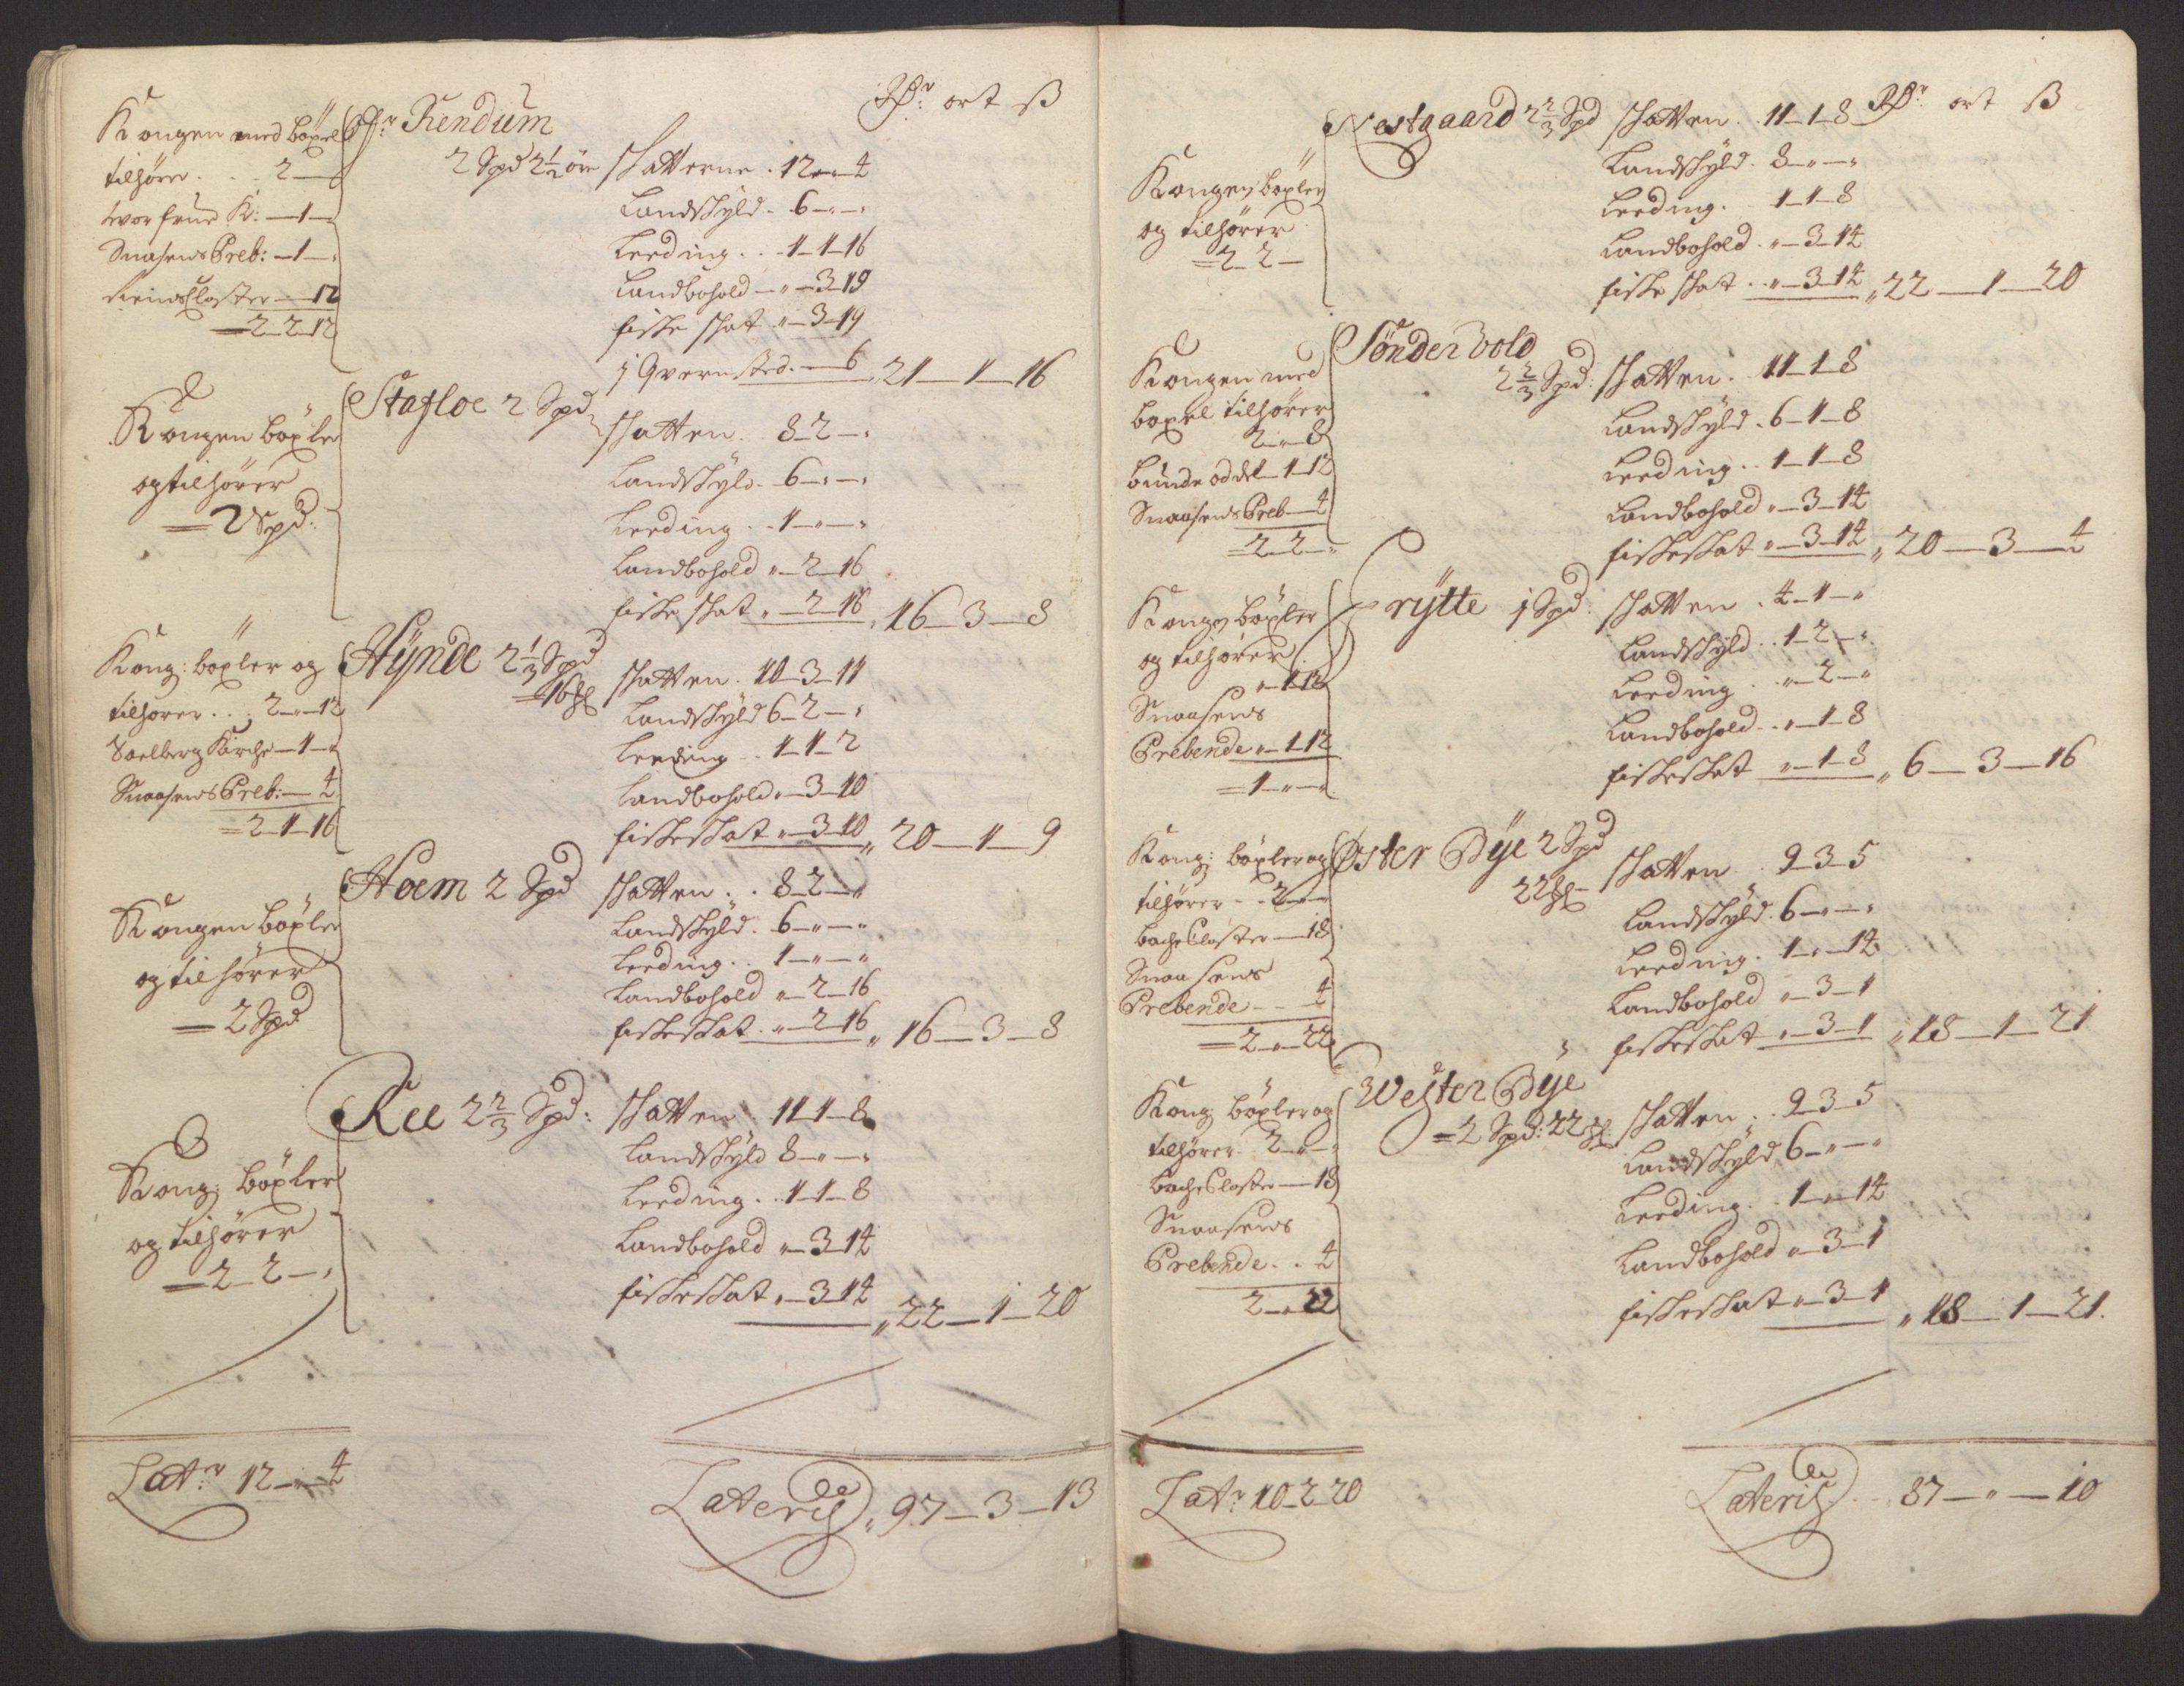 Rdr: ort ß
Kongen med böxel
tilhörer . . . 2 —
worfrue K: — 1 —
Snaasens Preb: — 1 — "
ReinsCloster — 12
= 2 — 2 — 12
Fr. Rendum
2 Spd 2½ öre
skatterne . 12 — " — 4
Landskÿld . 6 — " — "
Leeding . . 1 — 1 — 16
Landbohold — " — 3 — 19
fiske skat " — 3 — 19
j Qvernsted . — 6 21 — 1 — 16
Kongen böxler
og tilhörer
= 2 Spd:
Stafloe 2 Spd
skatten . 8 — 2 — "
Landskÿld . 6 — " — "
Leeding . . 1 — " — "
Landbohold " — 2 — 16
fiske skat " — 2 — 16 " 16 — 3 — 8
Kong: böxler og
tilhörer . . 2 — " — 12
Saelberg Kirche — 1 — "
Snaasens Preb: — 4
= 2 — 1 — 16
Hÿnde 2⅓ Spd
= 16 
skatten . 10 — 3 — 11
Landskÿld 6 — 2 — "
Leeding . . 1 — 1 — 2
Landbohold " — 3 — 10
fiskeskat " — 3 — 10 " 20 — 1 — 9
Kongen böxler
og tilhörer
= 2 Spd
Hoem 2 Spd
skatten . . 8 — 2 — "
Landskÿld . 6 — " — "
Leeding . . 1 — " — "
Landbohold " — 2 — 16
fiskeskat . " — 2 — 16 " 16 — 3 — 8
Kong: böxler
og tilhörer
= 2 — 2 — "
Ree 2⅔ Spd:
skatten . 11 — 1 — 8
Landskÿld 8 — " — "
Leeding . . 1 — 1 — 8
Landbohold " — 3 — 14
fiskeskat " — 3 — 14 " 22 — 1 — 20
Latr 12 — " — 4
Lateris " 97 — 3 — 13
Rdr: ort ß
Kongen böxler
og tilhörer
= 2 — 2 —
Nestgaard 2⅔ Spd
skatten . . 11 — 1 — 8
Landskÿld . 8 — " — "
Leeding . 1 — 1 — 8
Landbohold . " — 3 — 14
fiske skat . . " — 3 — 14 " 22 — 1 — 20
Kongen med
böxel tilhörer
2 — " — 8
bunde oddel — 1 — 12
Snaasens Preb — 4
= 2 — 2 — "
Sönder Vold
2⅔ Spd:
skatten . 11 — 1 — 8
Landskÿld . 6 — 1 — 8
Leeding . . 1 — 1 — 8
Landbohold " — 3 — 14
fiskeskat " — 3 — 14 " 20 — 3 — 4
Kongen böxler
og tilhörer
" — 1 — 12
Snaasens
Prebende " — 1 — 12
= 1 — " — "
Prÿtte j Spd:
skatten . 4 — 1 — "
Landskÿld . . 1 — 2 — "
Leeding . . " — 2 — "
Landbohold . . " — 1 — 8
fiskeskat " — 1 — 8 " 6 — 3 — 16
Kong: böxler og
tilhörer . . 2 — " — "
bache Closter — 18
Snaasens
Prebende . . 4
= 2 — " — 22
Öster Bÿe 2 Spd
22 
skatten . . 9 — 3 — 5
Landskÿld . 6 — " — "
Leeding . 1 — " — 14
Landbohold " — 3 — 1
fiskeskat " — 3 — 1 " 18 — 1 — 21
Kong: böxler og
tilhörer . 2 — " — "
bache Closter — 18
Snaasens
Prebende . . 4
2 — " — 22
Wester Bÿe
= 2 Spd: 22 
skatten . . 9 — 3 — 5
Landskÿld 6 — " — "
Leeding . . 1 — " — 14
Landbohold " — 3 — 1
fiskeskat " — 3 — 1 " 18 — 1 — 21.
Latr: 10 — 2 — 20
Lateris . . . 87 — " — 10